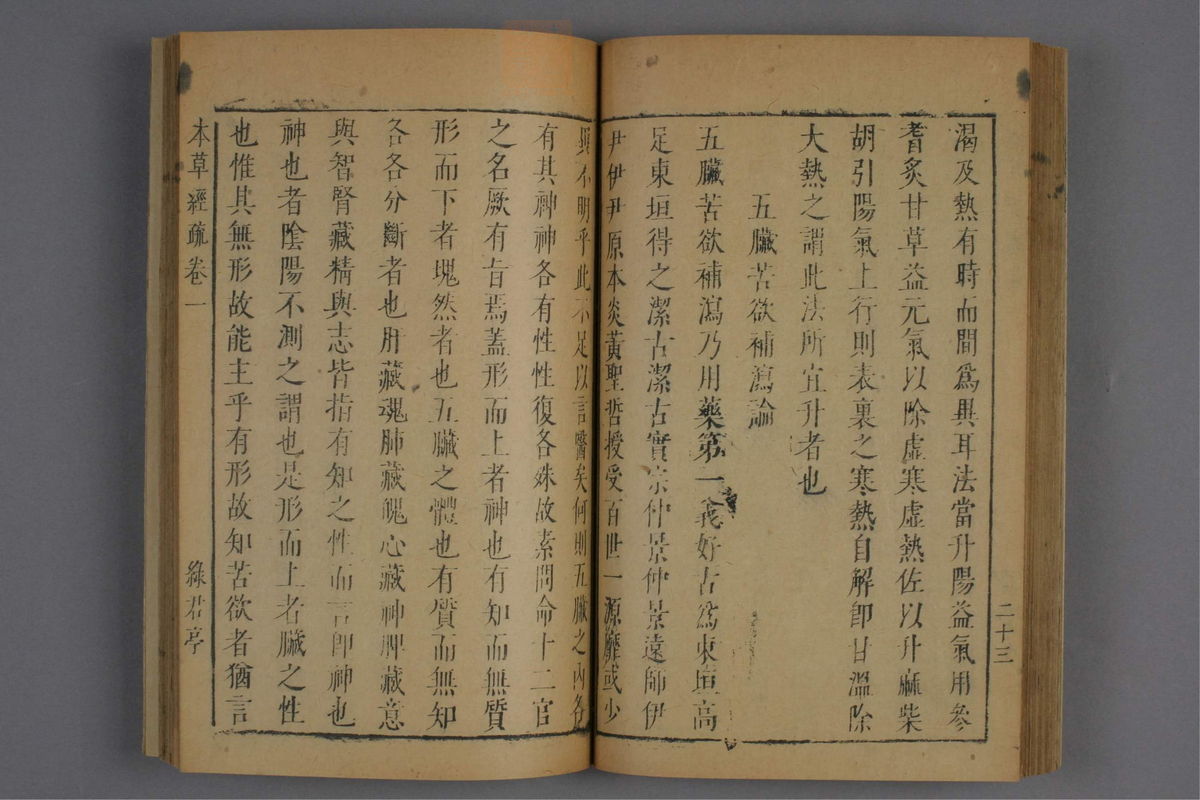 二十三
渴及熱有時而間爲異耳法當升陽益氣用參
耆炙甘草益元氣以除虛寒虛熱佐以升麻柴
胡引陽氣上行則表裏之寒熱自解卽甘溫除
大熱之謂此法所宜升者也
五臟苦欲補瀉論
五臟苦欲補瀉乃用藥第一義好古爲東垣高
足東垣得之潔古潔古實宗仲景仲景遠師伊
尹伊尹原本炎黃聖哲授受百世一源靡或少
異不明乎此不足以言醫矣何則五臟之內各
有其神神各有性性復各殊故素問命十二官
之名厥有旨焉蓋形而上者神也有知而無質
形而下者塊然者也五臟之體也有質而無知
各各分斷者也肝藏魂肺藏魄心藏神脾藏意
與智腎藏精與志皆指有知之性而言卽神也
神也者陰陽不測之謂也是形而上者臟之性
也惟其無形故能主乎有形故知苦欲者猶言
本草經疏卷一
綠君亭